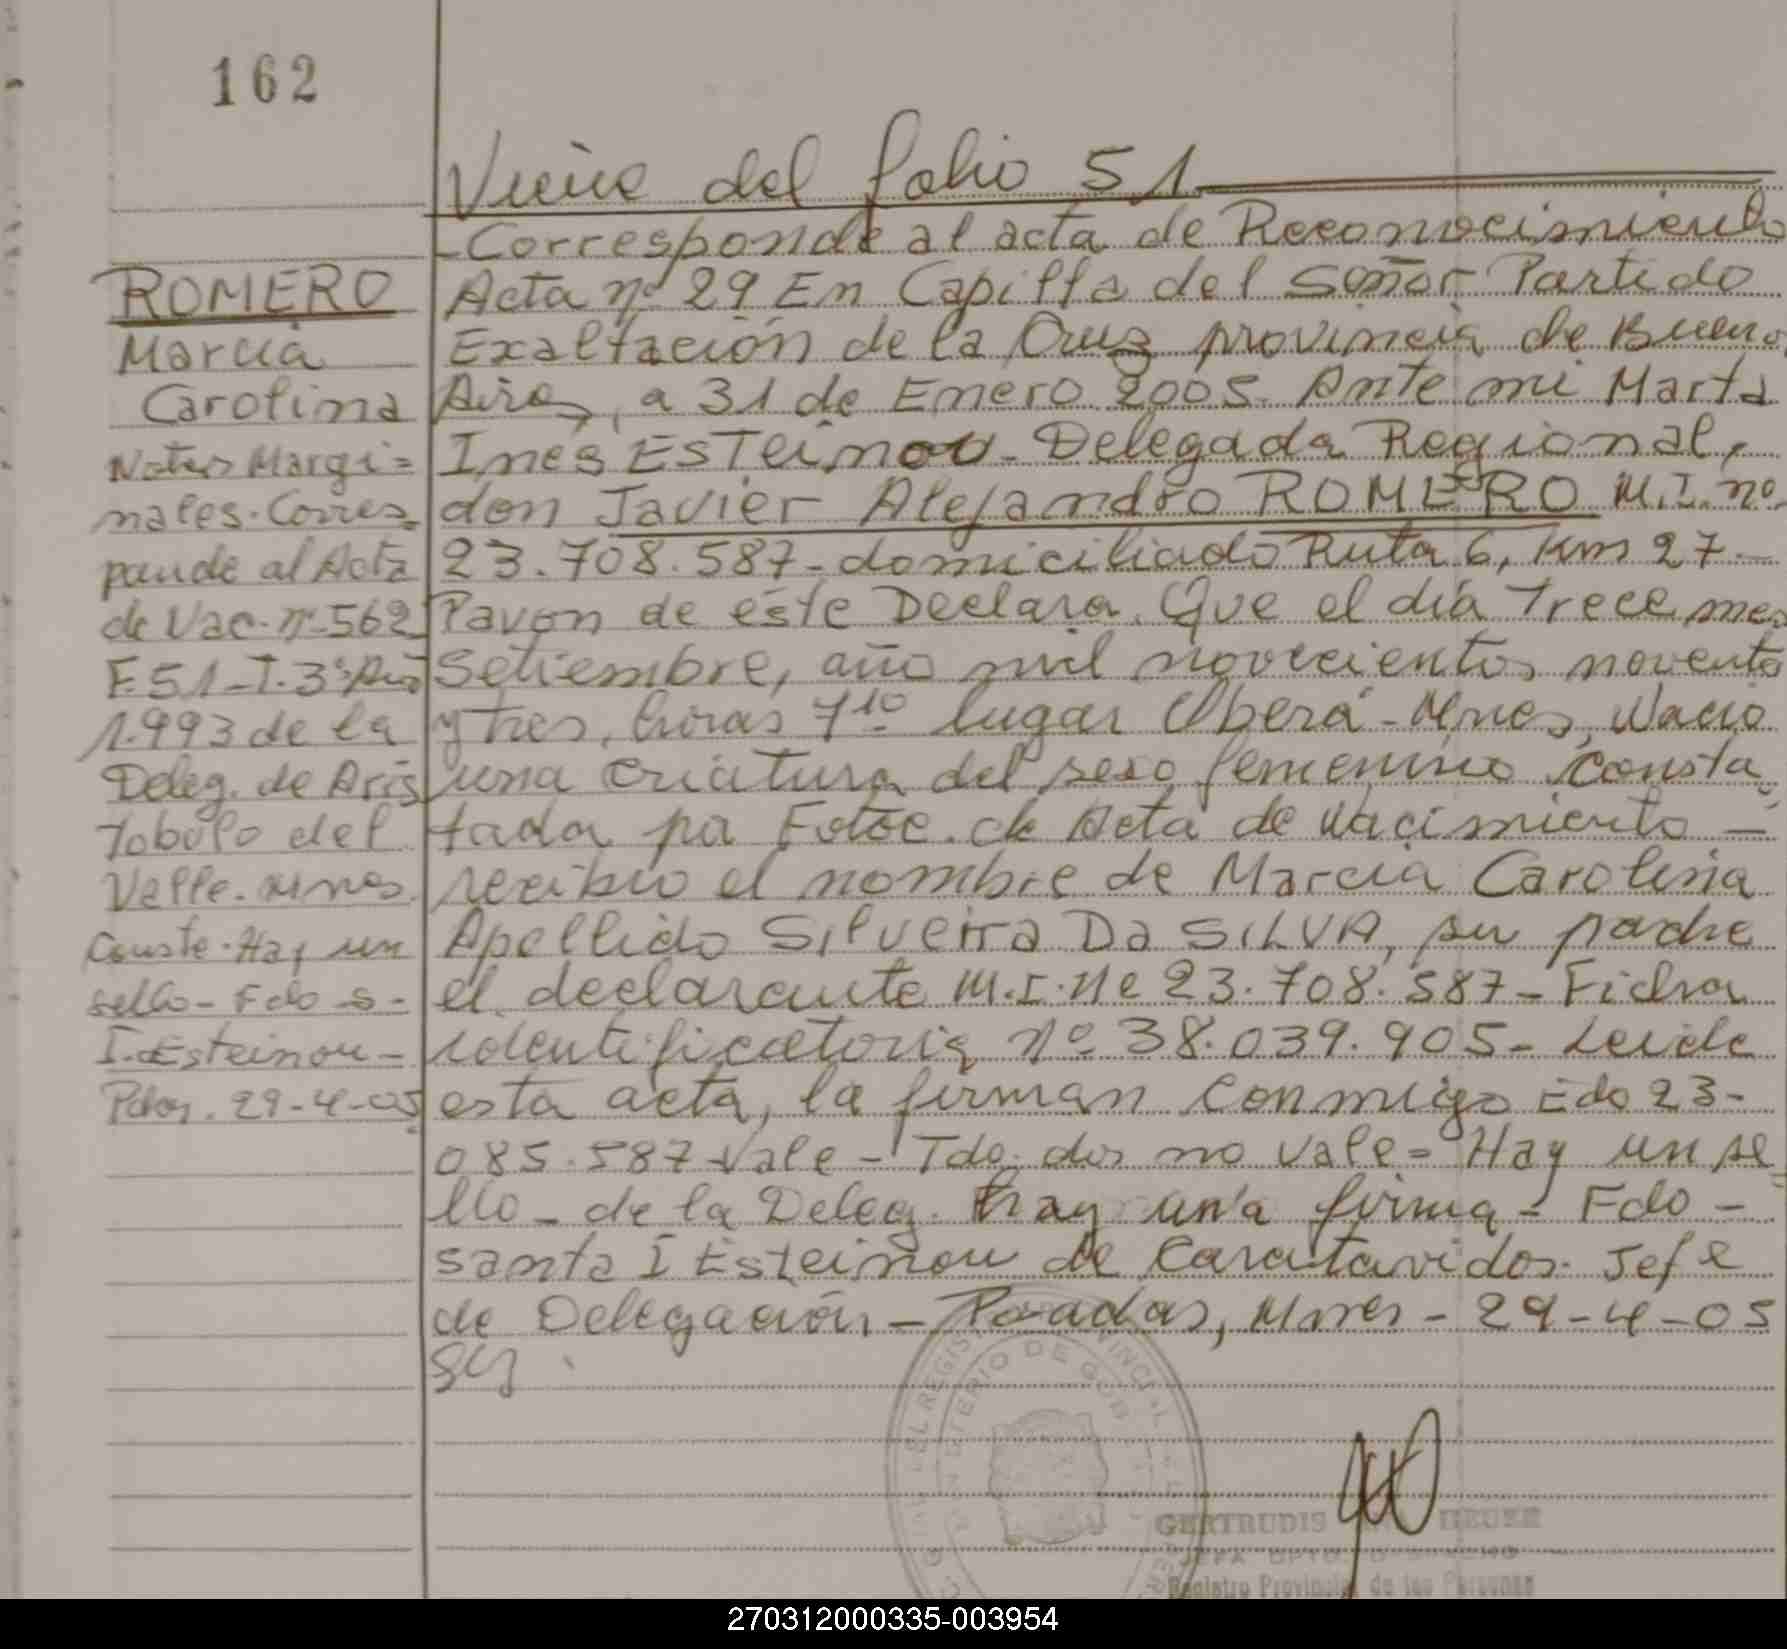 162
Viene del folio 51
ROMERO
Marcia
Carolina
Notas Margi=
nales. Corres=
ponde al Acta
de Nac. nº 562
F. 51 - T. 3º Año
1.993 de la
Deleg. de Aris
tobulo del
Valle. Mnes.
Conste. Hay un
sello - Fdo S-
I. Esteinou -
Pdas. 29-4-05
-Corresponde al acta de Reconocimiento
Acta nº 29 En Capilla del Señor Partido
Exaltación de la Cruz provincia de Bueno
Aires, a 31 de Enero 2005. Ante mi Marta
Inés Esteinou - Delegada Regional,
don Javier Alejandro ROMERO M.I. nº
23.708.587 - domiciliado Ruta 6, Km 27 -
Pavon de éste Declara. Que el día Trece mes
Setiembre, año mil novecientos noventa
y tres, horas 7 10 lugar Oberá - Mnes, Nació
una criatura del sexo femenino consta=
tada por Fotoc. de Acta de Nacimiento -
recibió el nombre de Marcia Carolina
Apellido Silveira Da SILVA, su padre
el declarante M.I. Nº 23.708.587 - Ficha
identificatoria nº 38.039.905 - Leida
esta acta, la firman conmigo Edo 23-
085.587 Vale - Tdo. dos no vale = Hay un se=
llo - de la Deleg. hay una firma - Fdo -
santa I Esteinou de Caratavidos. Jefe
de Delegación - Posadas, Mnes - 29-4-05
GERTRUDIS
JEFA DPTO.
Registro Provincial de las Personas
MINISTERIO DE GOB
270312000335-003954